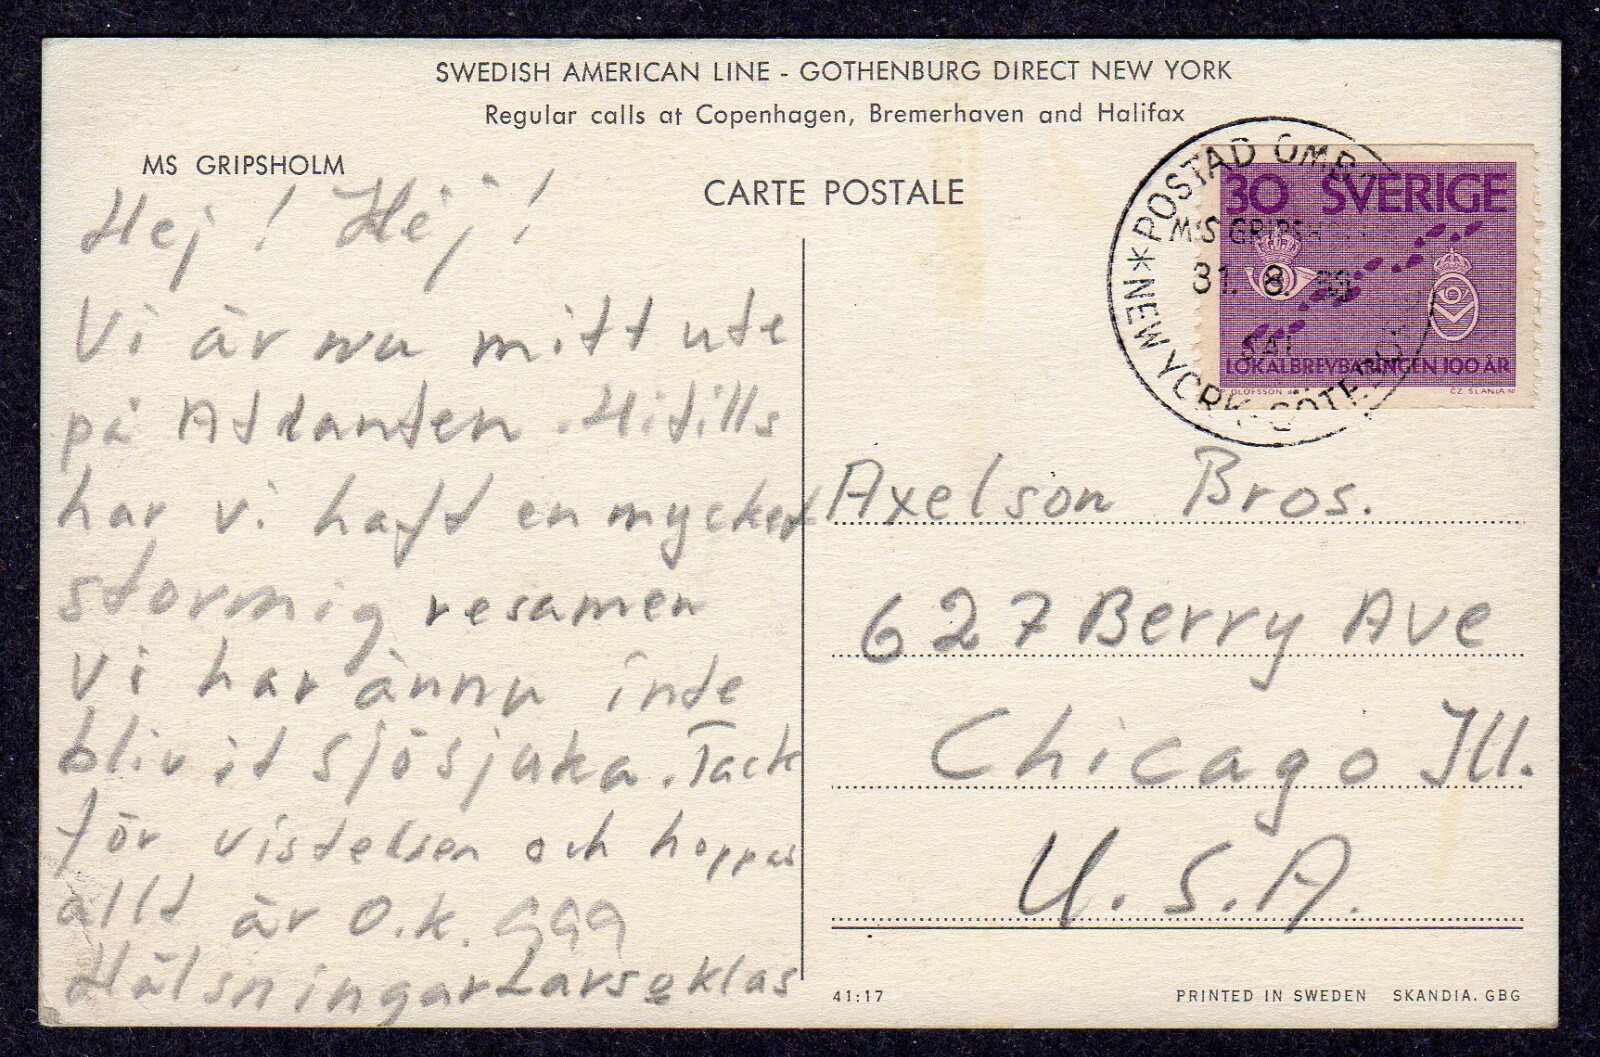 SWEDISH AMERICAN LINE - GOTHENBURG DIRECT NEW YORK
Regular calls at Copenhagen, Bremerhaven and Halifax
MS GRIPSHOLM
CARTE POSTALE
Hej! Hej!
Vi är nu mitt ute
på Atlanten. Hitills
har vi haft en mycket
stormig resa men
Vi har ännu inte
blivit sjösjuka. Tack
för vistelsen och hoppas
allt är O.K.
Hälsningar Lars o Klas
POSTAD OMB
M/S GRIPSH
31. 8.
NEW YORK-GÖTEB
30 SVERIGE
LOKALBREVBÄRINGEN 100 ÅR
OLOFSSON
CZ. SLANIA
Axelson Bros.
627 Berry Ave
Chicago Ill.
U.S.A.
41:17
PRINTED IN SWEDEN SKANDIA. GBG